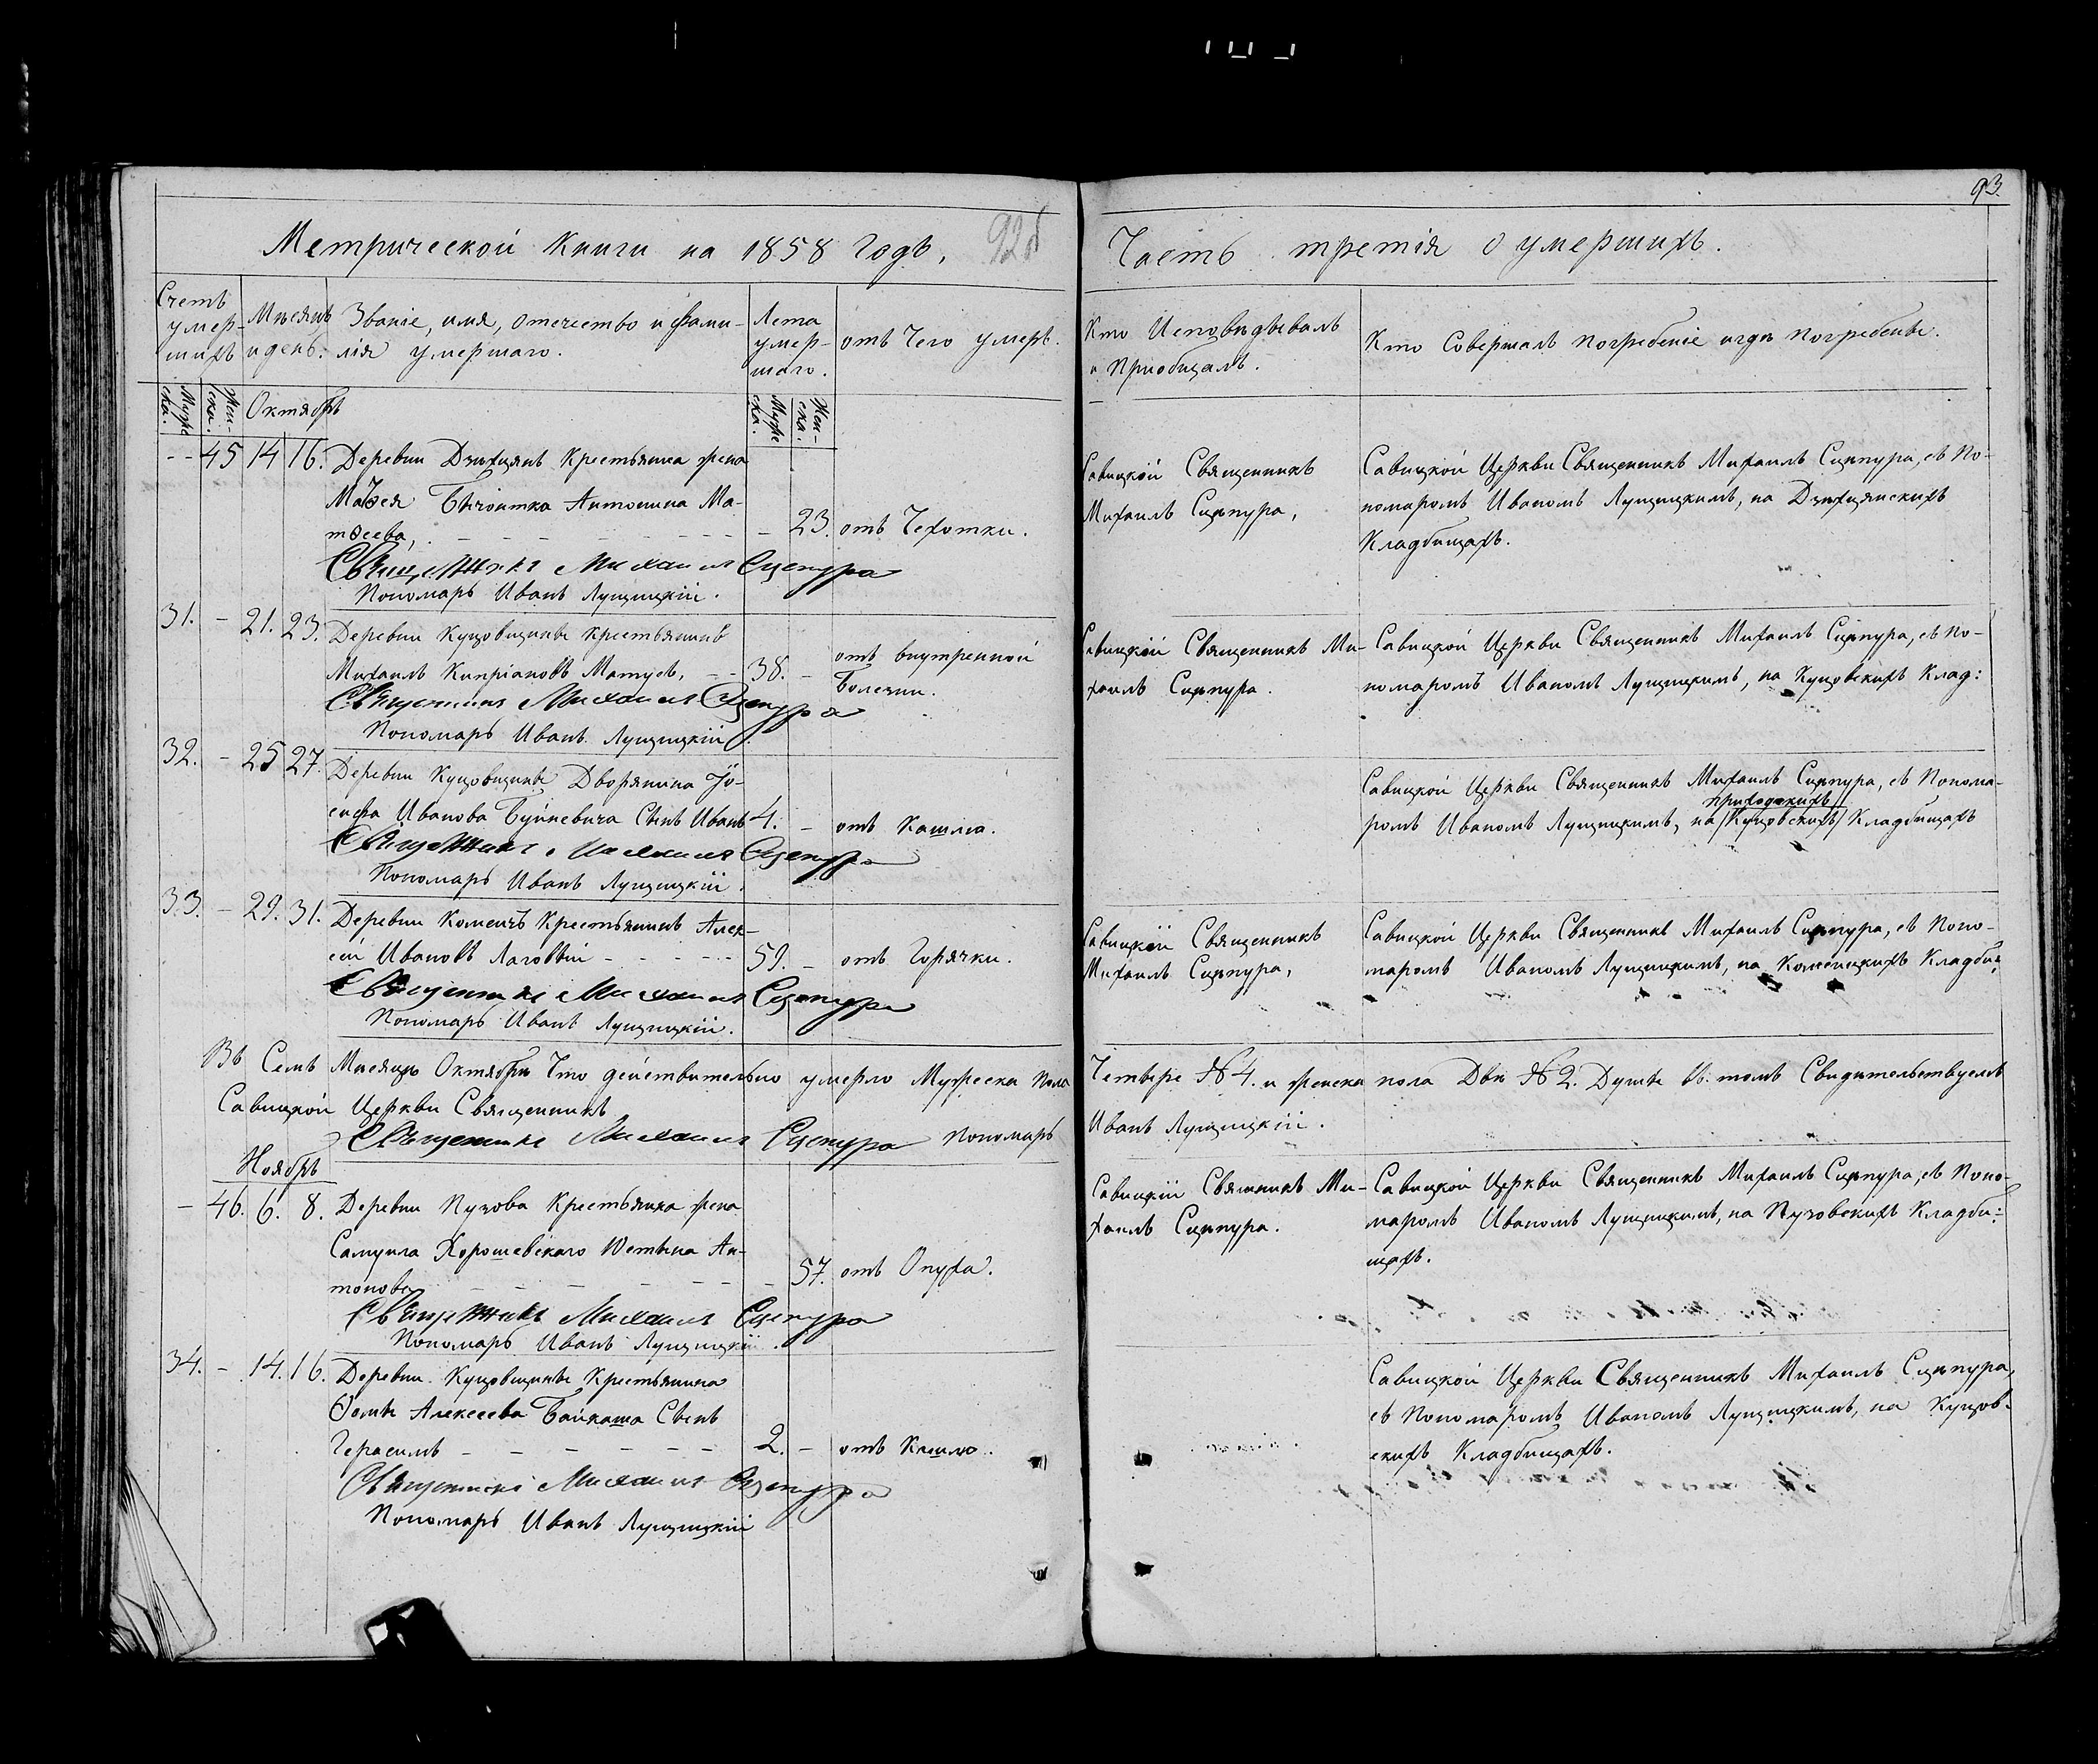 93.
Метрической Книги на 1858 Годъ,
Часть третія о умершихъ.
Счетъ умер-шихъ
Мѣсяцъ и день.
Званіе, имя, отечество и фами-
лія умершаго.
Лета умер-шаго.
отъ Чего умеръ.
Кто Исповѣдывалъ
и Приобщалъ.
Кто Совершалъ погребеніе и гдѣ погребены.
Муже ска.
Жен-ска.
Октябрь
Муже ска.
Жен-ска.
-- 45 14 16. Деревни Крестьянка жена
Маѳея Антонина Ма-
тѳеева, - 23. отъ Чехотки.
Священникъ Михаилъ Сцепура
Пономарь Иванъ Лущицкій.
Савицкой Священникъ
Михаилъ Сцепура,
Савицкой Церкви Священникъ Михаилъ Сцепура, съ По-
номаромъ Иваномъ Лущицкимъ, на
Кладбищахъ.
31. - 21. 23. Деревни Куцовщины крестьянинъ
Михаилъ Кипріановъ Матусъ, 38. - отъ внутренной
болезни.
Священникъ Михаилъ Сцепура
Пономарь Иванъ Лущицкій
Савицкій Священникъ Ми-
хаилъ Сцепура.
Савицкой Церкви Священникъ Михаилъ Сцепура, съ По-
номаромъ Иваномъ Лущицкимъ, на Куцовскихъ Клад:
32. - 25 27. Деревни Куцовщины Дворянина Іо-
сифа Иванова Буйневича Сынъ Иванъ 4. - отъ Кашлю.
Священникъ Михаилъ Сцепура
Пономарь Иванъ Лущицкій.
Савицкой Церкви Священникъ Михаилъ Сцепура, съ Понома-
приходскихъ
ромъ Иваномъ Лущицкимъ, на /Куцовскихъ/ Кладбищахъ
33. - 29. 31. Деревни Крестьянинъ Алек-
сій Ивановъ Лаговскій 59. - отъ Горячки.
Священникъ Михаилъ Сцепура
Пономарь Иванъ Лущицкій.
Савицкій Священникъ
Михаилъ Сцепура,
Савицкой Церкви Священникъ Михаилъ Сцепура, съ Поно-
маромъ Иваномъ Лущицкимъ, на Кладби:
Въ Семъ Мѣсяцѣ Октябрѣ Что действительно умерло Мужеска Пола Четыре № 4. и женска пола Двѣ № 2. Души въ томъ Свидѣтельствуемъ
Савицкой Церкви Священникъ
Священникъ Михаилъ Сцепура Пономарь Иванъ Лущицкій.
Ноябрь
- 46. 6. 8. Деревни Пузова Крестьянка жена
Самуила Хорошевскаго Ан-
тонова 57. отъ Опуха.
Священникъ Михаилъ Сцепура
Пономарь Иванъ Лущицкій.
Савицкій Ми-
хаилъ Сцепура.
Савицкой Церкви Священникъ Михаилъ Сцепура, съ Поно-
маромъ Иваномъ Лущицкимъ, на Пузовскихъ Кладби:
щахъ.
34. - 14. 16. Деревни Куцовщины Крестьянина
Ѳомы Алексеева Байкаша Сынъ
Герасимъ 2. - отъ Кашлю.
Священникъ Михаилъ Сцепура
Пономарь Иванъ Лущицкій
Савицкой Церкви Священникъ Михаилъ Сцепура,
съ Пономаромъ Иваномъ Лущицкимъ, на Куцов-
скихъ Кладбищахъ.